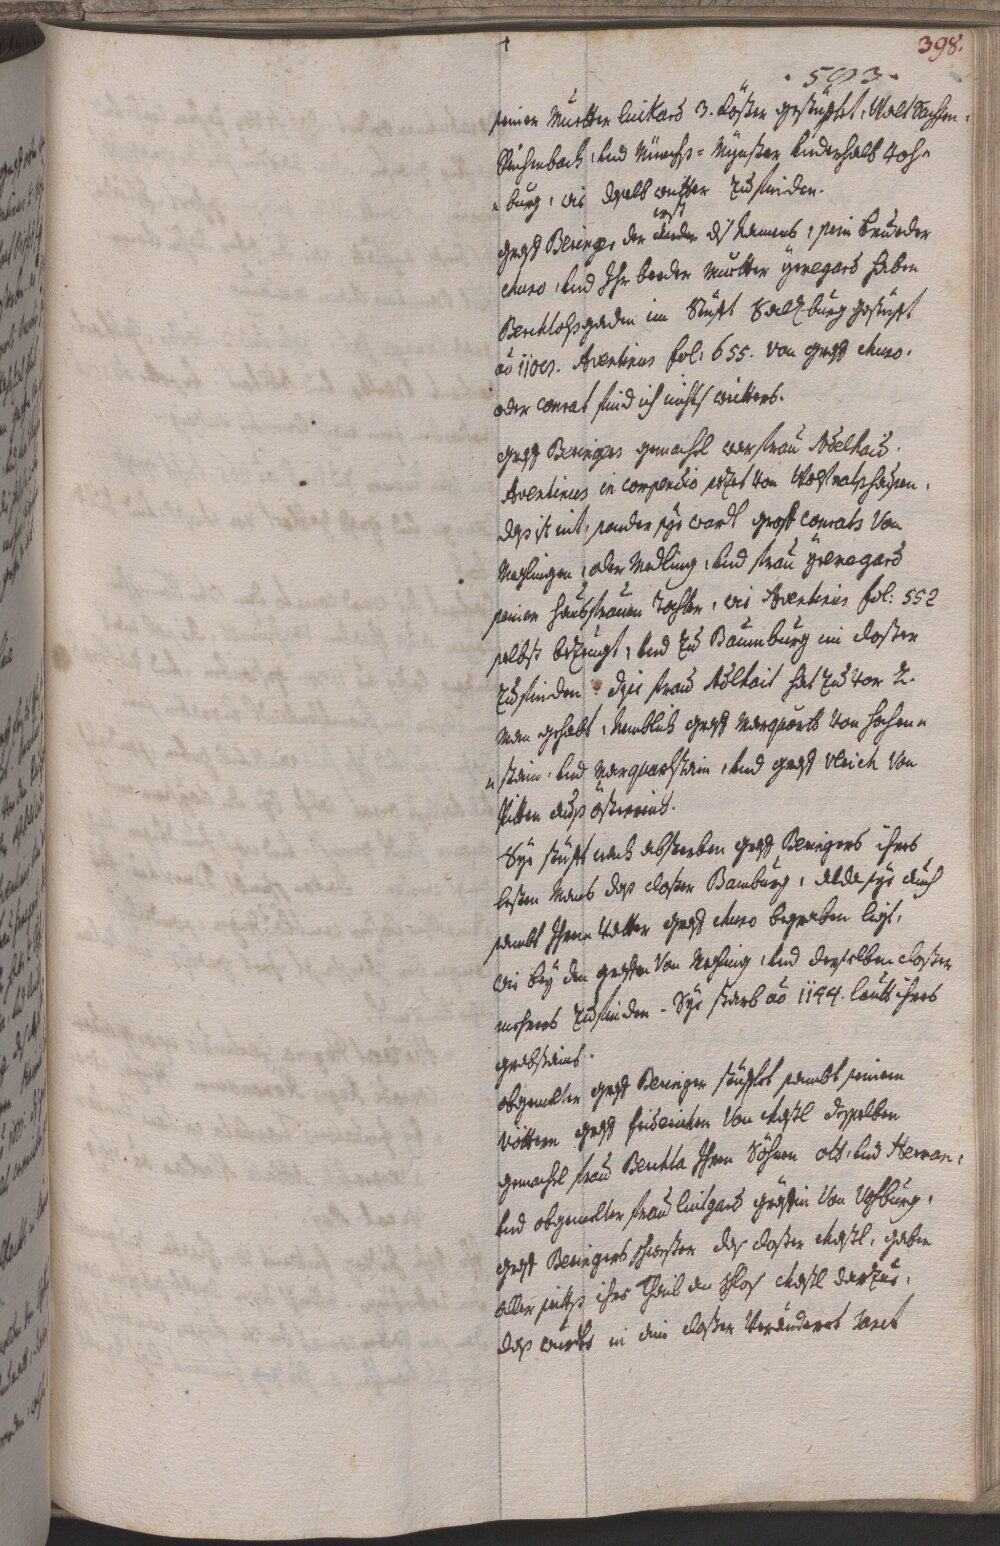 398.
. 593 .
seiner Muetter Luikard 3. Clöster gestüfft, Waltsachsen,
Reichenbach, und Münchs-Mynster underhalb Voh-
-burg, wie deselb weitter zu finden.
erst
Graff Beringer der ander des Namens, sein Brueder
Cuno, und Ihr beeder Muetter Yrmegard haben
Berchtolsgaden im Stüfft Saltzburg gestüfft
ao 1109. Aventinus fol: 655. von graff Cuno.
oder Conrat find ich nichts weitters.
Graff Beringers gemachl war frau Adelhaid.
Aventinus in compendio setzt von Wolfratshausen,
das ist nit, sonder sye wardt graff Conrats von
Meglingen, oder Medling, und frau Yrmegard
seiner Hausfrauen Tochter, wie Aventinus fol: 552
selbst bezeugt, und zu Baumburg im Closter
zufinden. Dise frau Adlhait hat zuvor 2.
Man gehabt, Nemblich graff Marquarts von Hochen-
-stain, und Marquartstain, und graff Ulrich von
Pitten auss Össterreich.
Sye stüfft nach absterben graff Beringers ihres
lesten Mans das Closter Bamburg, alda sye auch
sambt Ihrem Vatter graff Cuno begraben ligt,
wie bey den graffen von Megling, und desselben Closter
mehrers zufinden. Sye starb ao 1144. lautt ihres
grabstains.
obgemelter graff Beringer stüfftet sambt seinem
Vöttern graff Friderichen von Castl desselben
gemachl frau Berchta Ihren Söhnen Ott, und Herman,
und obgemelter frau Luitgard gräffin von Vohburg,
graff Beringers schwester das Closter Castl, gaben
aller seits ihrs Thail am Schlos Castl darzue,
das wurdt in ein Closter verändert samt